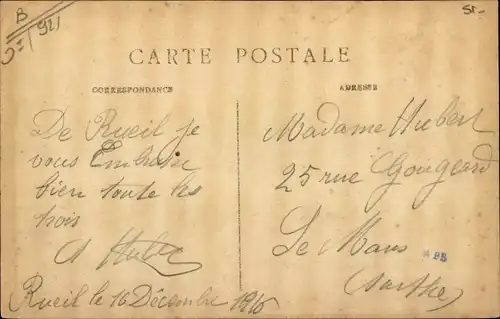 B
921
St-
CARTE POSTALE
CORRESPONDANCE
ADRESSE
De Rueil je
vous Embrasse
bien toute les
trois
A Huber
Rueil le 16 Décembre 1916
Madame Hubert
25 rue Gougeard
Le Mans
(Sarthe)